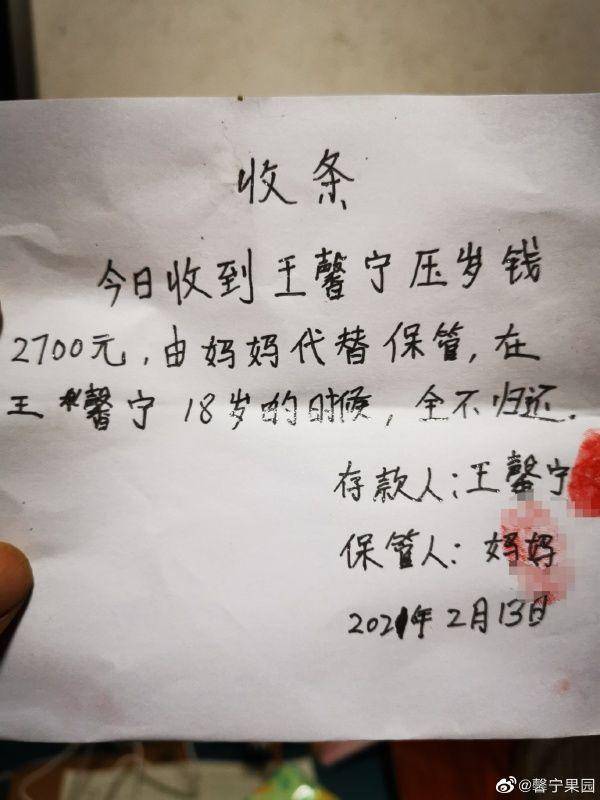 收条
今日收到王馨宁压岁钱
2700元,由妈妈代替保管,在
王馨宁18岁的时候,全不归还.
存款人:王馨宁
保管人:妈妈
2021年2月13日
@馨宁果园